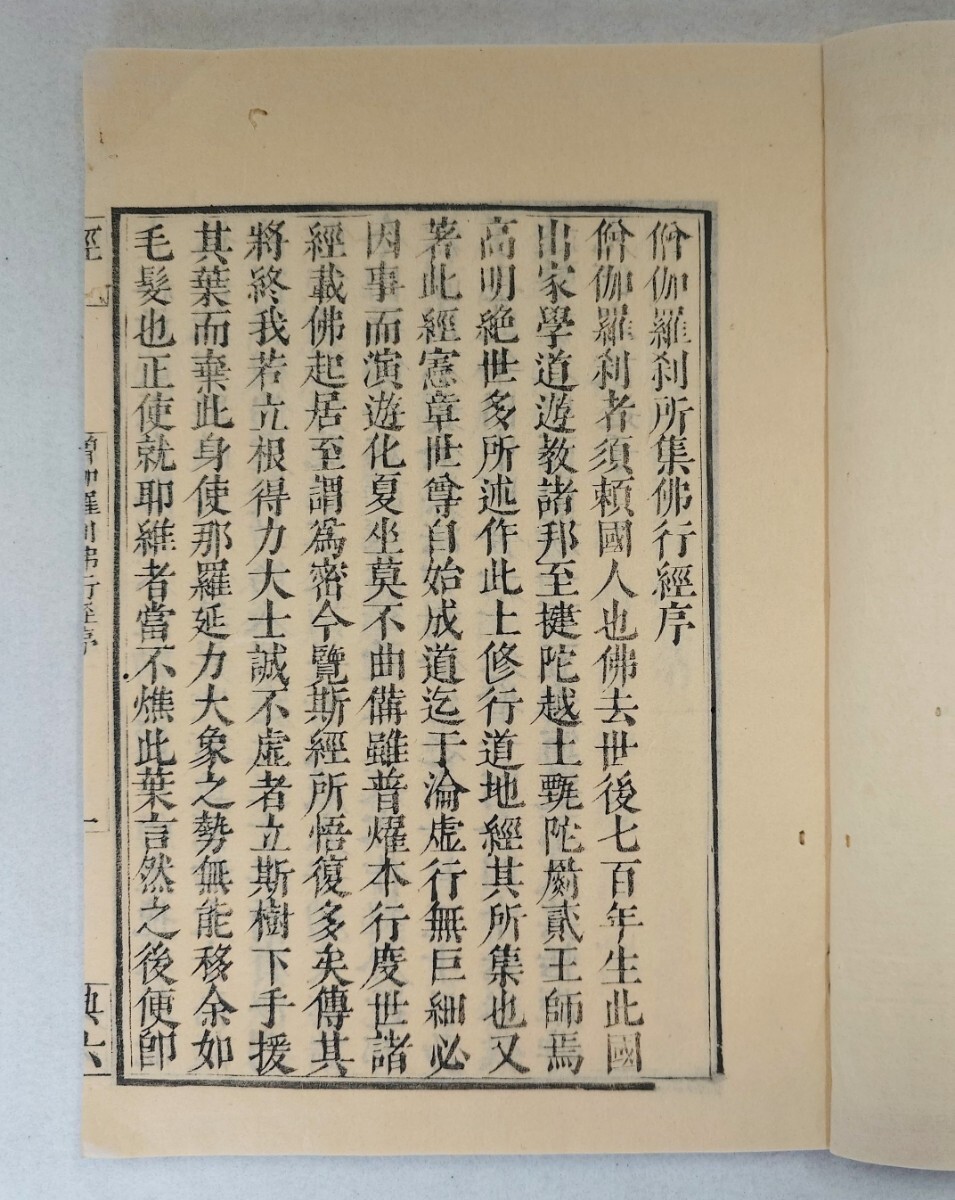 僧伽羅刹所集佛行經序
僧伽羅刹者須賴國人也佛去世後七百年生此國
出家學道遊教諸邦至揵陀越土甄陀罽貳王師焉
高明絶世多所述作此土修行道地經其所集也又
著此經憲章世尊自始成道迄于淪虛行無巨細必
因事而演遊化夏坐莫不曲備雖普燿本行度世諸
經載佛起居至謂爲密今覽斯經所悟復多矣傳其
將終我若立根得力大士誠不虛者立斯樹下手援
其葉而棄此身使那羅延力大象之勢無能移余如
毛髮也正使就耶維者當不燋此葉言然之後便卽
經 僧伽羅刹佛行經序 一 典六